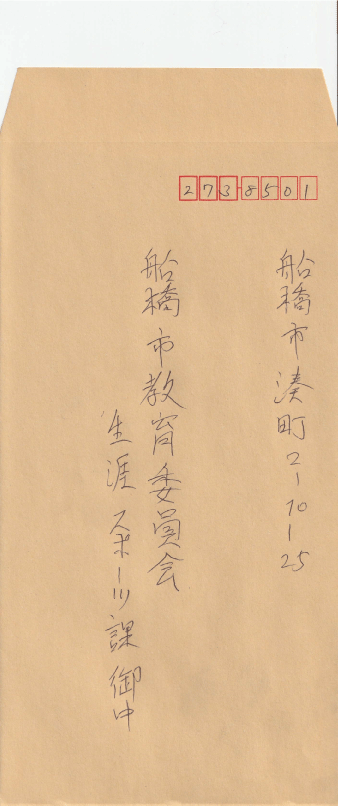 273-8501
船橋市湊町2-10-25
船橋市教育委員会
生涯スポーツ課 御中